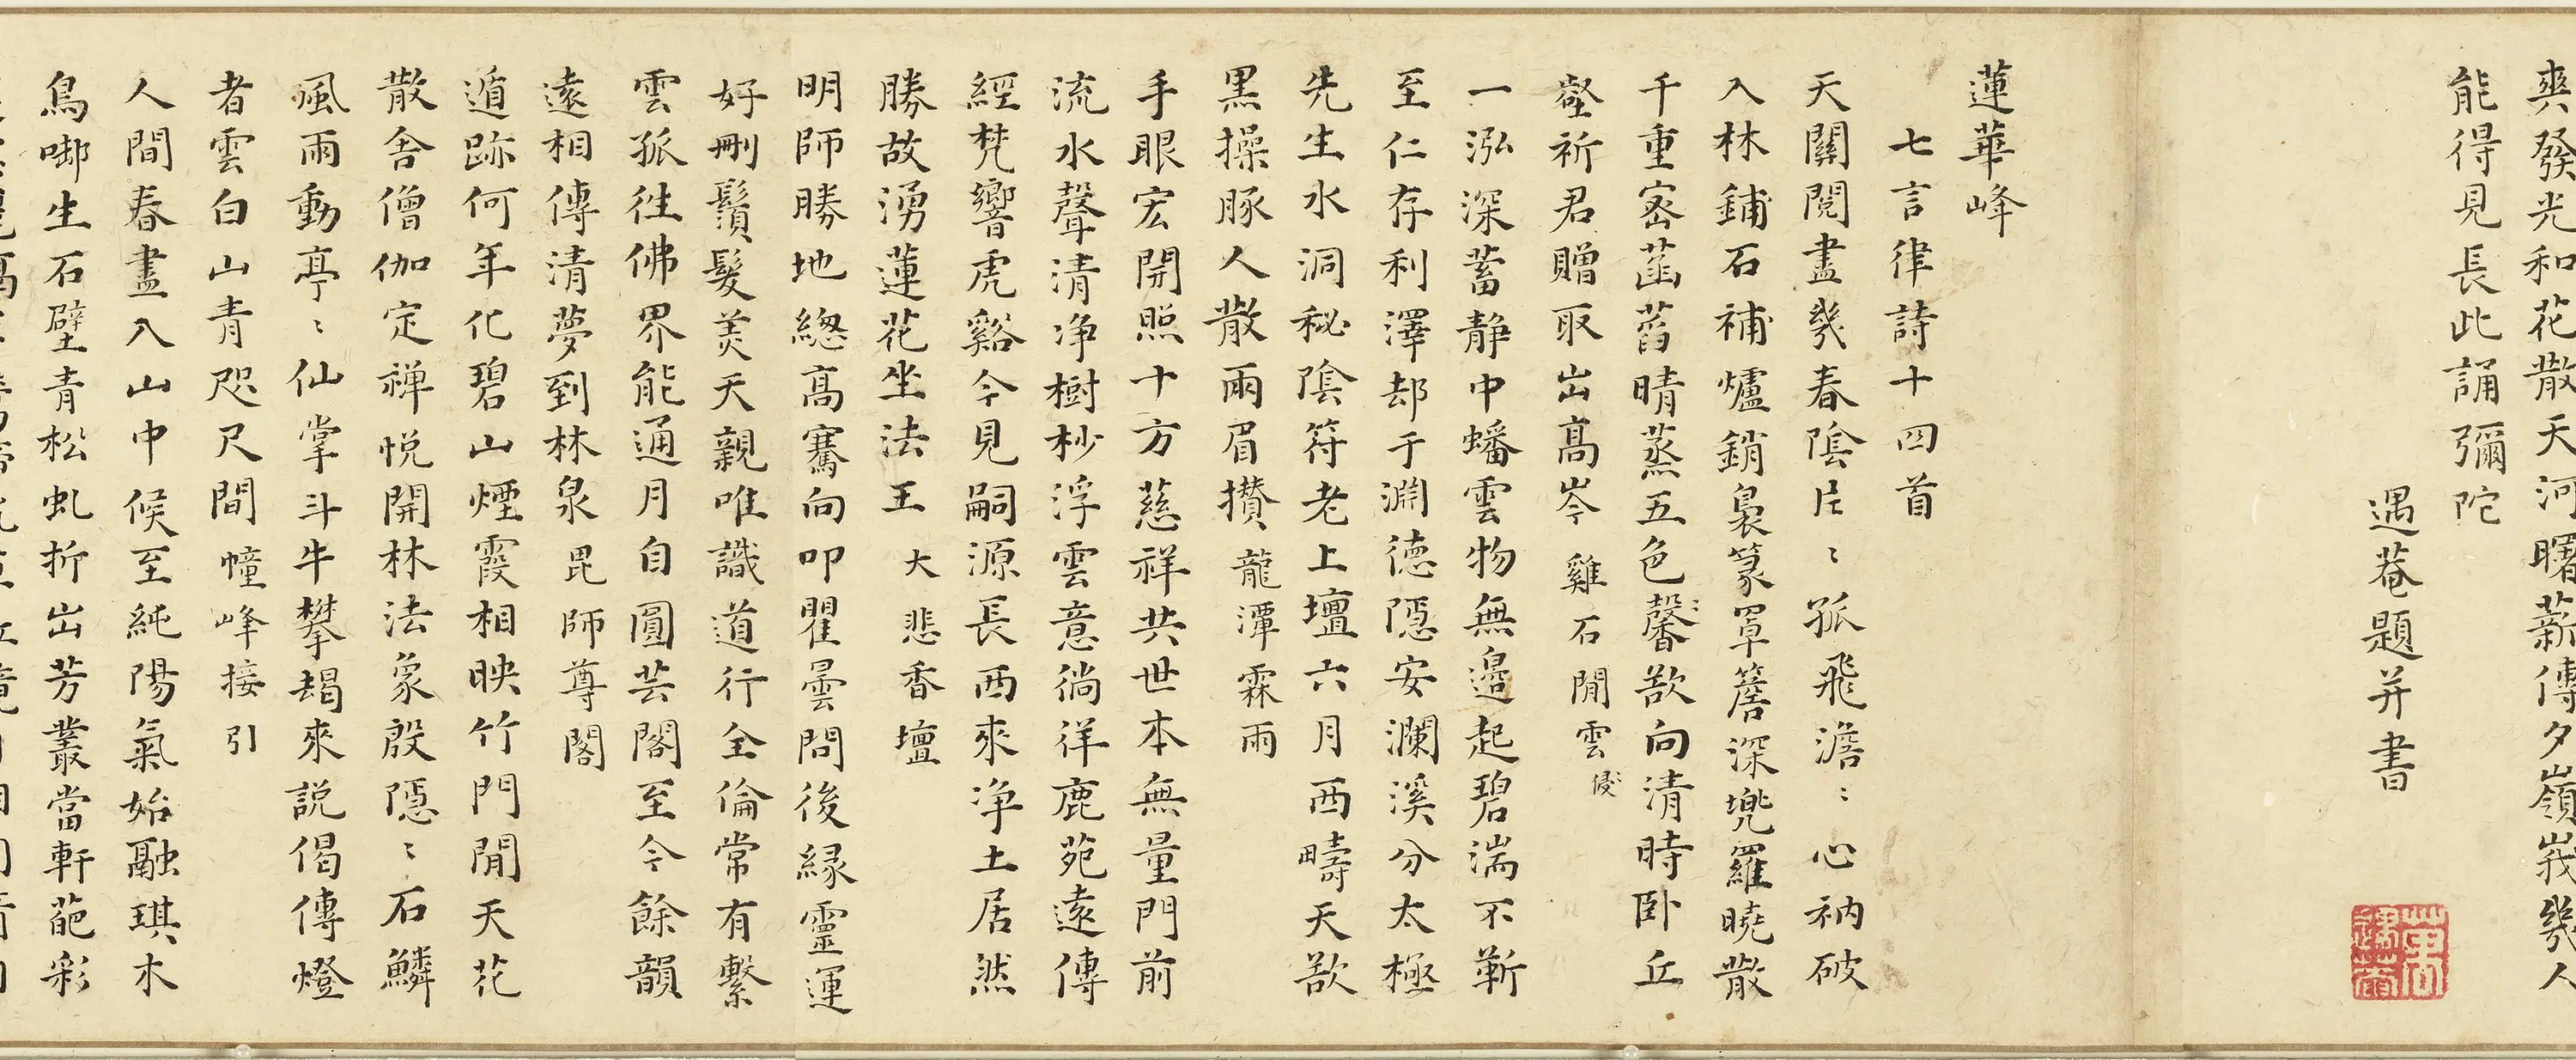 爽發光和花散天河曙薪傳夕嶺峩幾人
能得見長此誦彌陀
遇菴題并書
蓮華峰
七言律詩十四首
天關閱盡幾春陰片〻孤飛澹〻心衲破
入林鋪石補爐銷裊篆罩簷深兠羅曉散
千重密菡萏晴蒸五色馨歆向清時卧丘
壑祈君贈取出高岑 雞石閒雲
侵
一泓深蓄靜中蟠雲物無邊起碧湍不蘄
至仁存利澤却于淵德隱安瀾溪分太極
先生水洞秘陰符老上壇六月西疇天欲
黑操豚人散雨眉攢 龍潭霖雨
手眼宏開照十方慈祥共世本無量門前
流水聲清淨樹杪浮雲意徜徉鹿苑遠傳
經梵響虎谿今見嗣源長西來淨土居然
勝故湧蓮花坐法王 大悲香壇
明師勝地總高騫向叩瞿曇問後緣靈運
好刪鬚髮美天親唯識道行全倫常有繫
雲孤往佛界能通月自圓芸閣至今餘韻
遠相傳清夢到林泉 毘師尊閣
遁跡何年化碧山煙霞相映竹門閒天花
散舍僧伽定禪悅開林法象殷隱〻石鱗
風雨動亭〻仙掌斗牛攀朅來説偈傳燈
者雲白山青咫尺間 幢峰接引
人間春盡入山中候至純陽氣始融琪木
鳥啣生石壁青松虬折出芳叢當軒葩彩